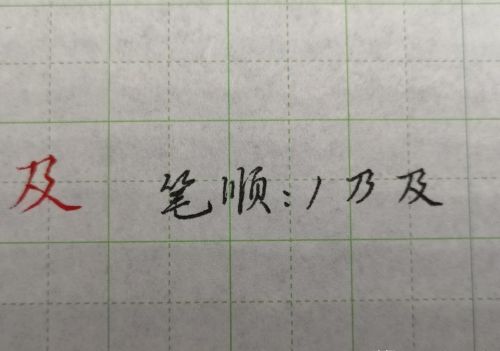 及 笔顺:丿乃及